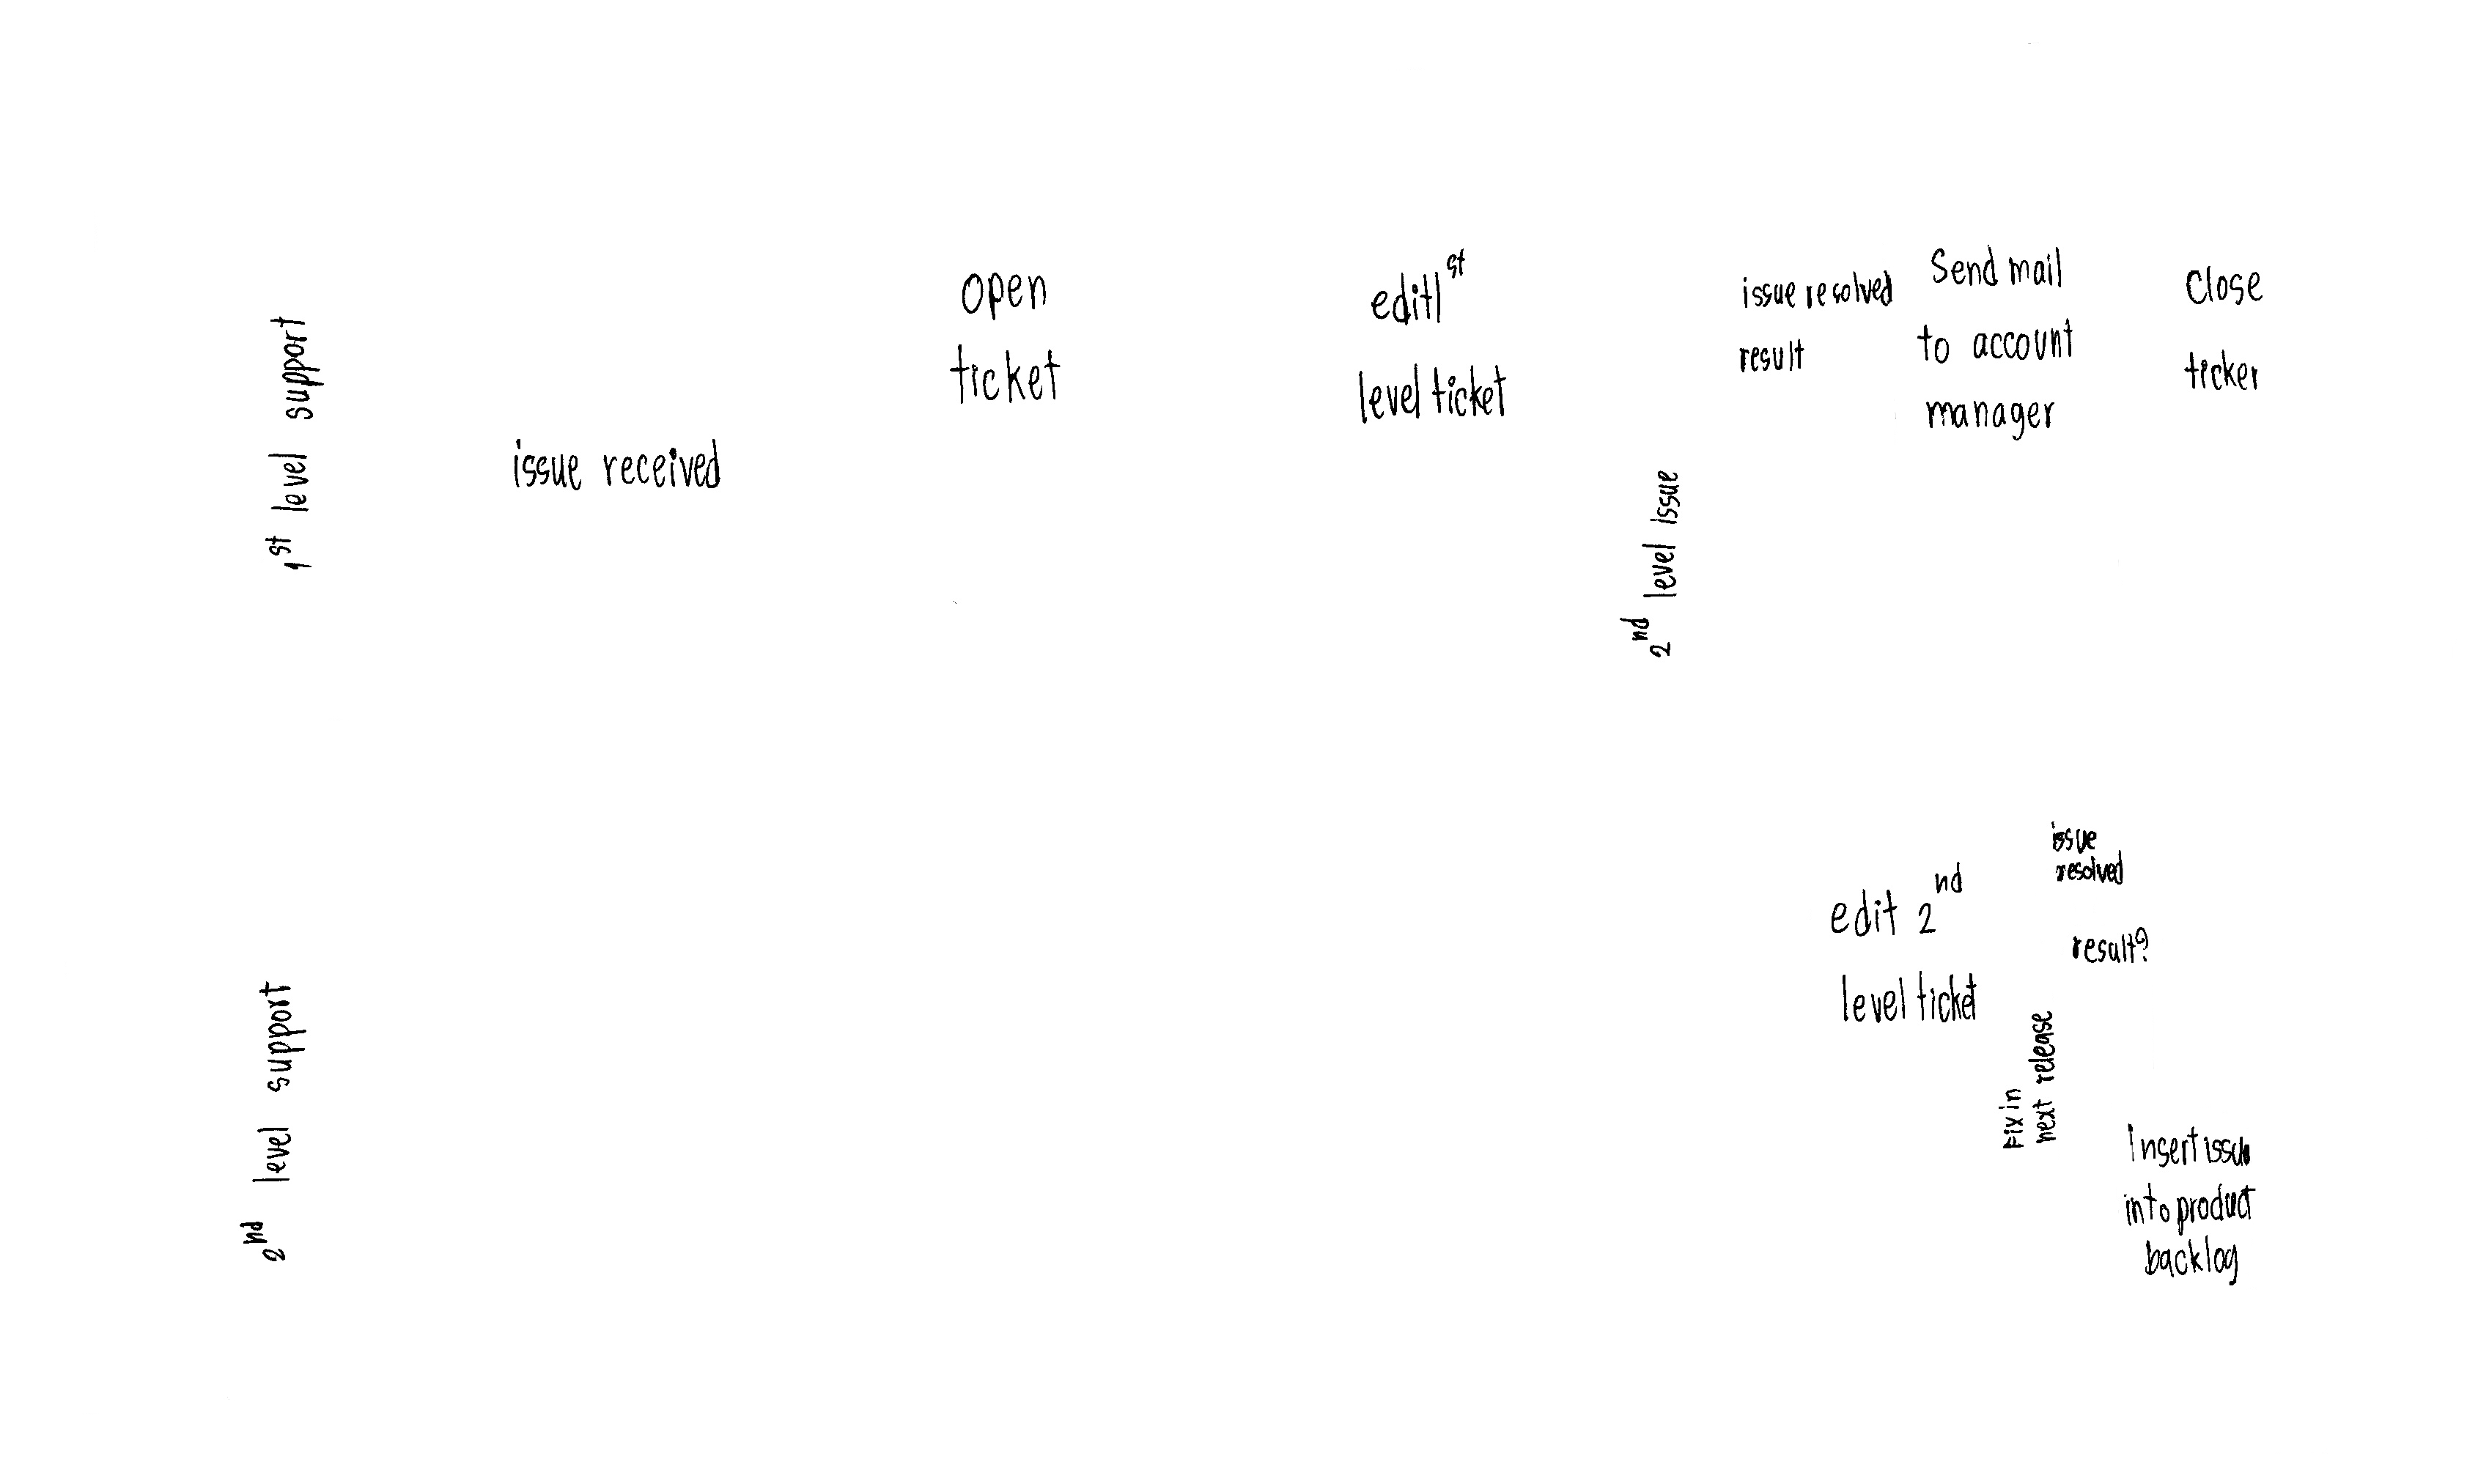 1st level support
issue received
open
ticket
edit 1st
level ticket
issue resolved
result
2nd level issue
Send mail
to account
manager
Close
ticker
2nd level support
edit 2nd
level ticket
issue
resolved
result?
Fix in
next release
Insert issue
into product
backlog